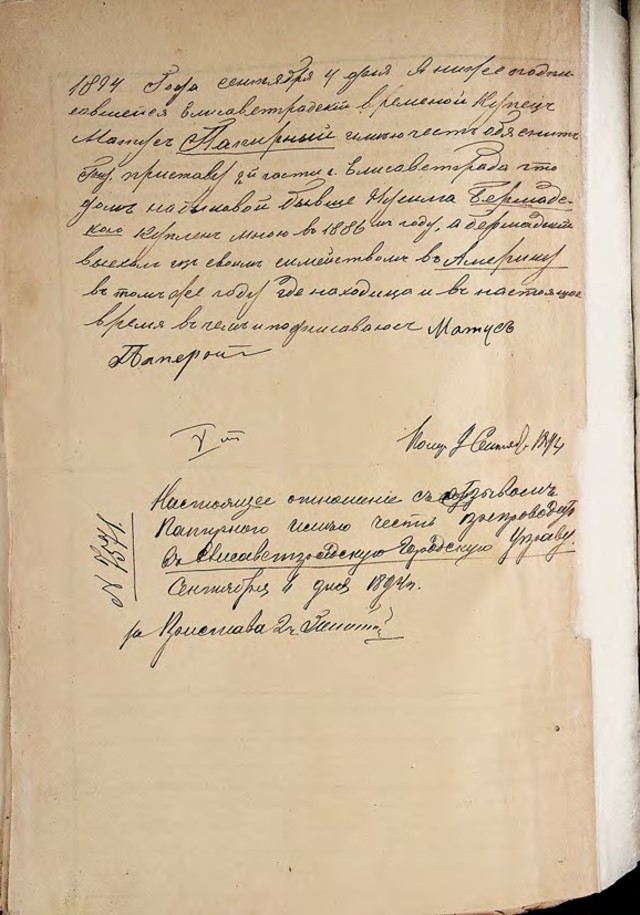 1894 Года сентября 4 дня Я нижеподпи
савшейся Елисаветградскій временой Купецъ
Матусъ Папирный имѣю честь обяснить
Гну. приставу 2й части г. Елисаветграда что
домъ на Быковой бывше Нусима Бершадс-
кого куплен мною въ 1886 мъ году, а бершадскій
выехал изъ своимъ семействомъ въ Америку
въ томъ же году где находица и въ настоящее
время въ чемъ и подписаваюсь Матусъ
Паперой
Сентяб. 1894
Настоящее отношеніе съ отзывомъ
Папирного имѣю честь препроводить
въ Елисаветградскую Городскую Управу.
Сентября 4 дня 1894 г.
N 7371.
За Пристава 2 ч.